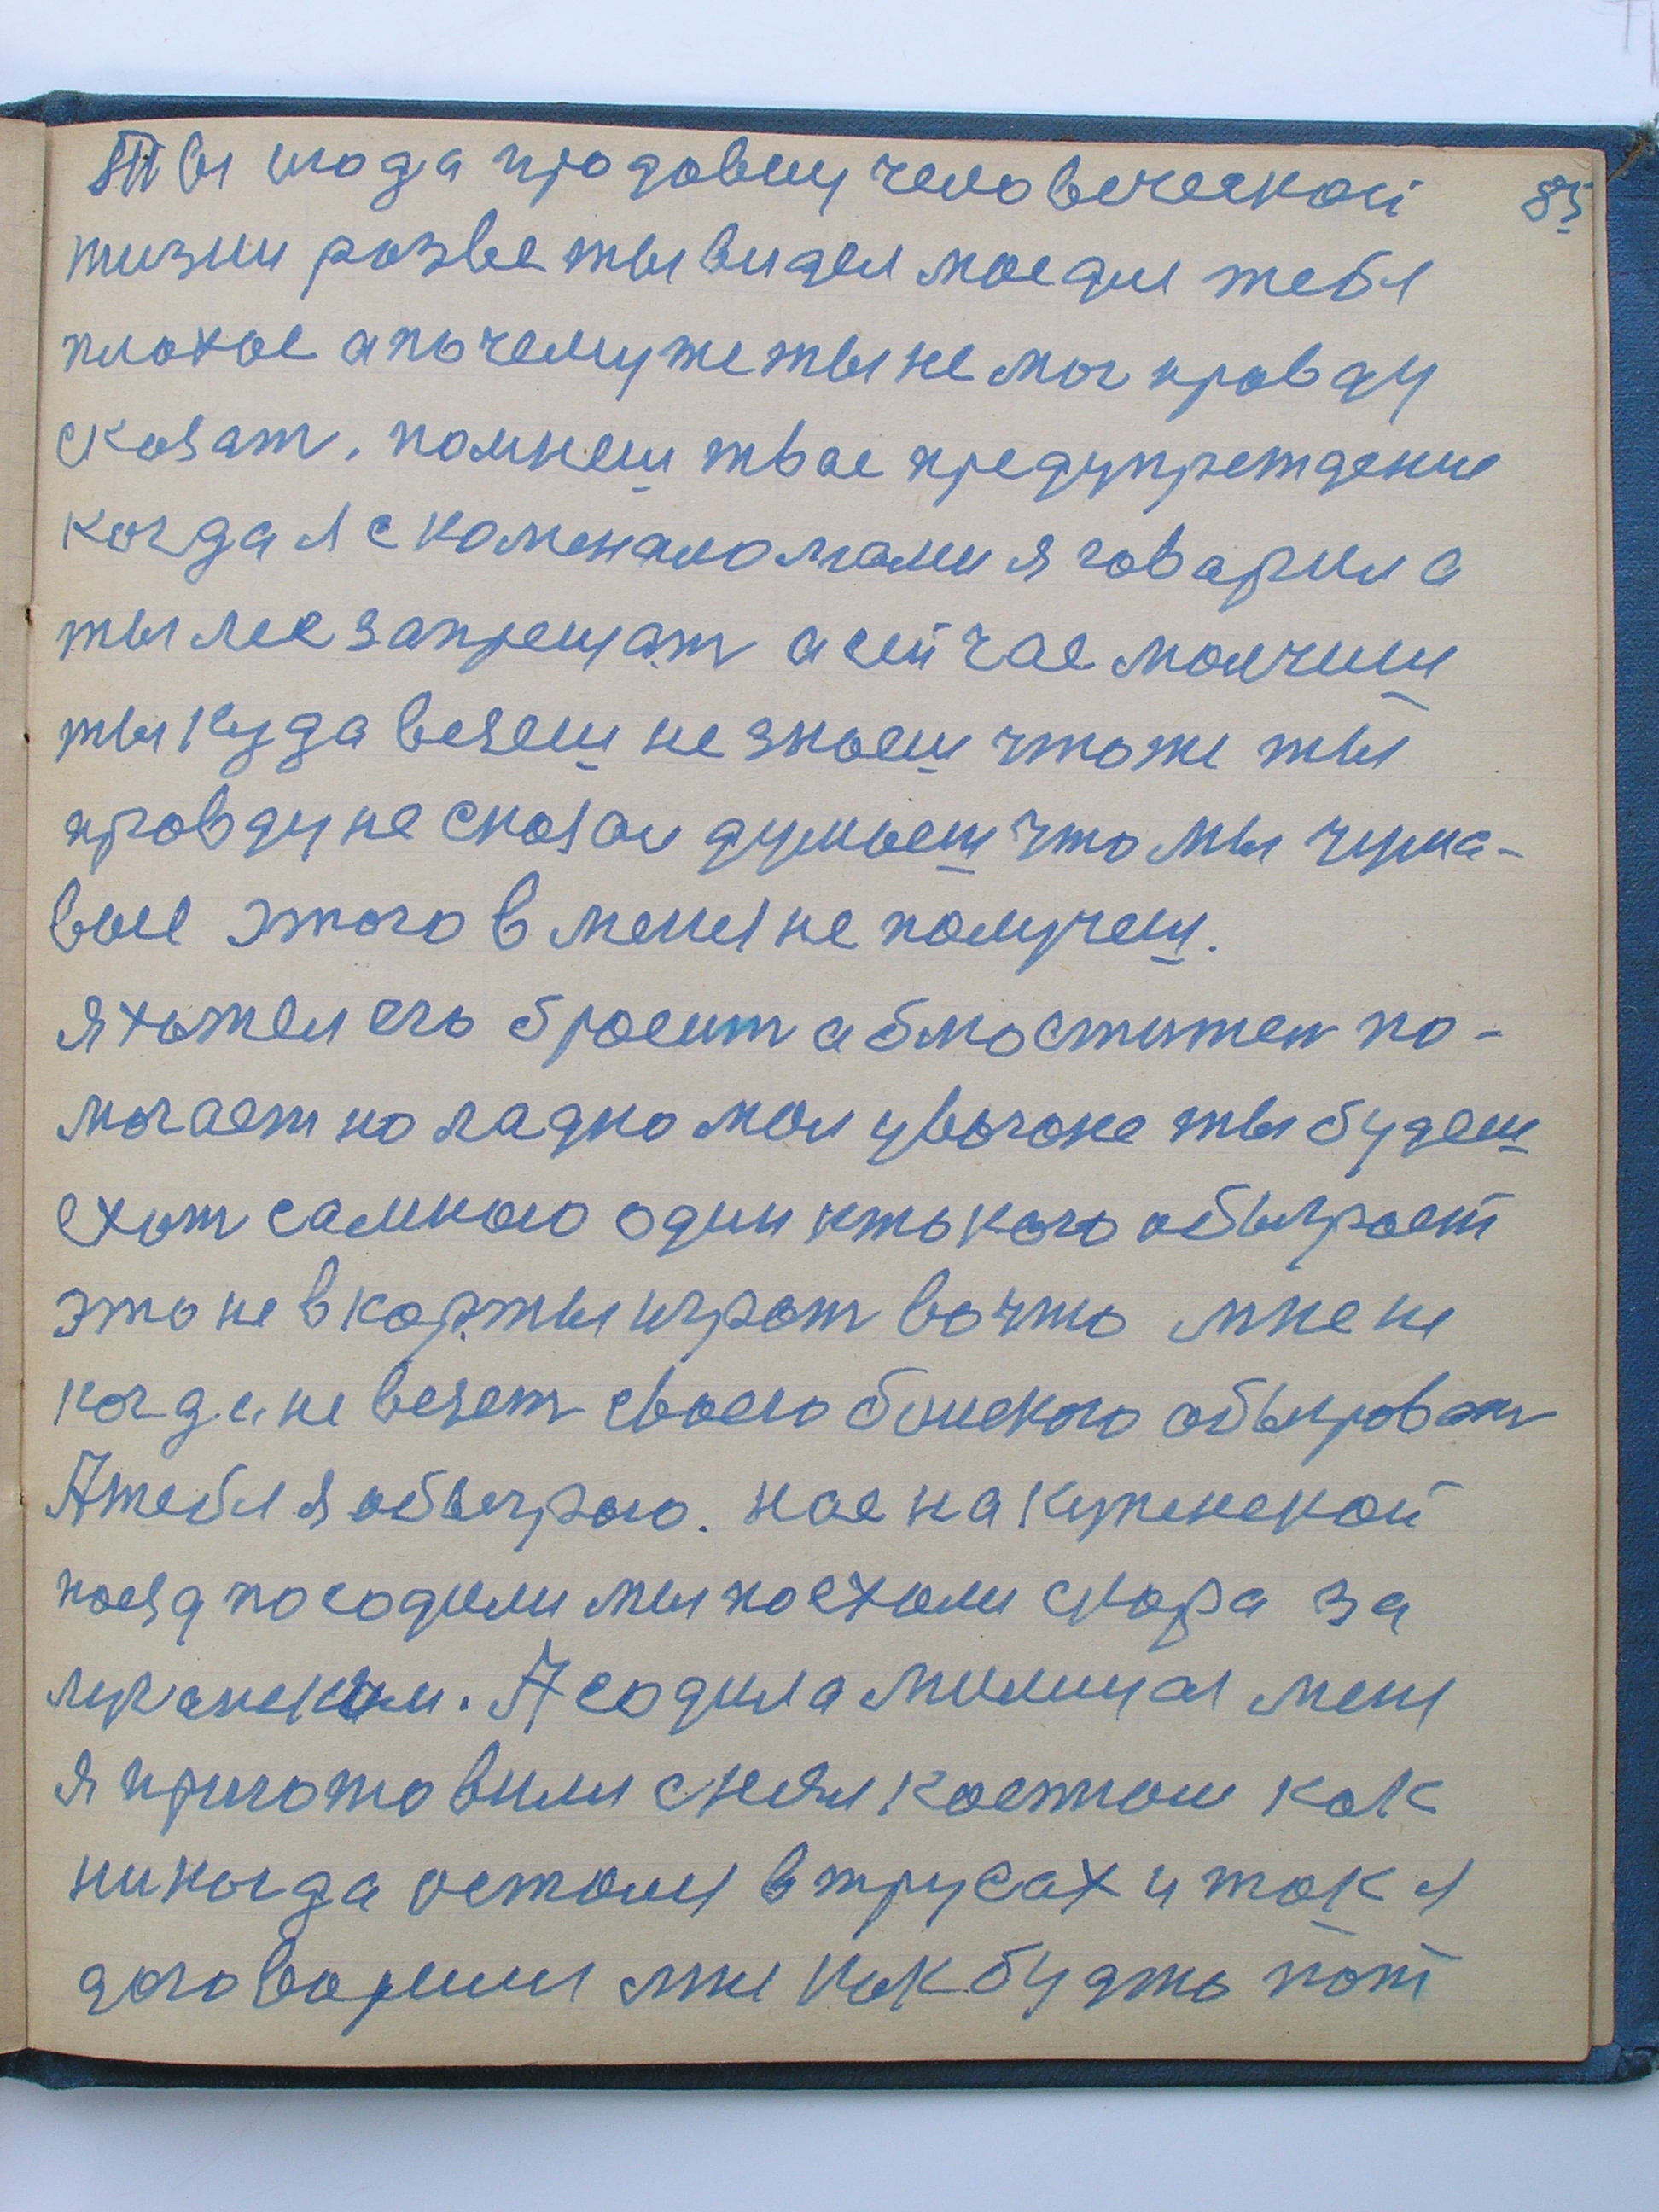 Ты июда продавец человеческой 85
жизни розве ты видел мое для тебя
плохое а почемуже ты не мог провду
сказат. помнеш твае предупреждение
когда я с
ты мне запрещат а сейчас молчиш
ты куда везеш не знаеш чтоже ты
провду не сказал думаеш что мы чума-
вые этого в меня не получеш.
я хотел его бросит а бмоститель по-
могает но ладно мол увогоне ты будеш
ехат самною один кто кого обыграет
это не в карты играт вочто мне не
когда не везет своего блиского обыгрват
А тебя я обыграю. нас на Купенской
поезд посодили мы поехали скора за
луганском. А содила милицая меня
я приготовился снял костюм как
никогда остолся в трусах и так я
договорился мне как будто пот